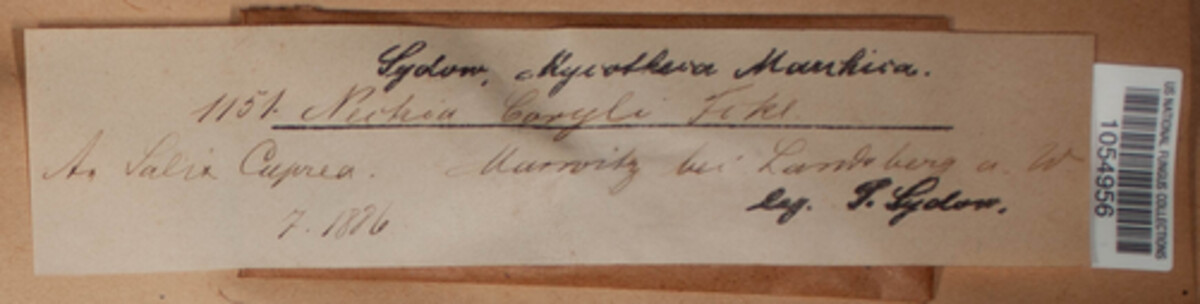 Sydow, Mycotheca Marchica.
1151. Nectria Coryli Fckl.
An Salix Caprea. Marwitz bei Landsberg a. W.
leg. P. Sydow.
7. 1886
US NATIONAL FUNGUS COLLECTIONS
1054956